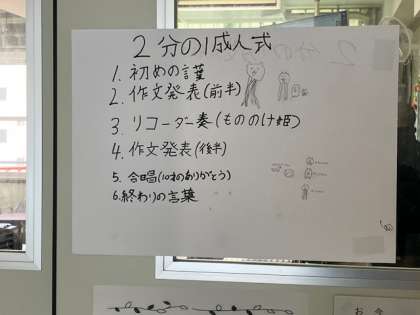 2分の1成人式
1. 初めの言葉
2. 作文発表(前半)
3. リコーダー奏(もののけ姫)
4. 作文発表(後半)
5. 合唱(10才のありがとう)
6.終わりの言葉
お今